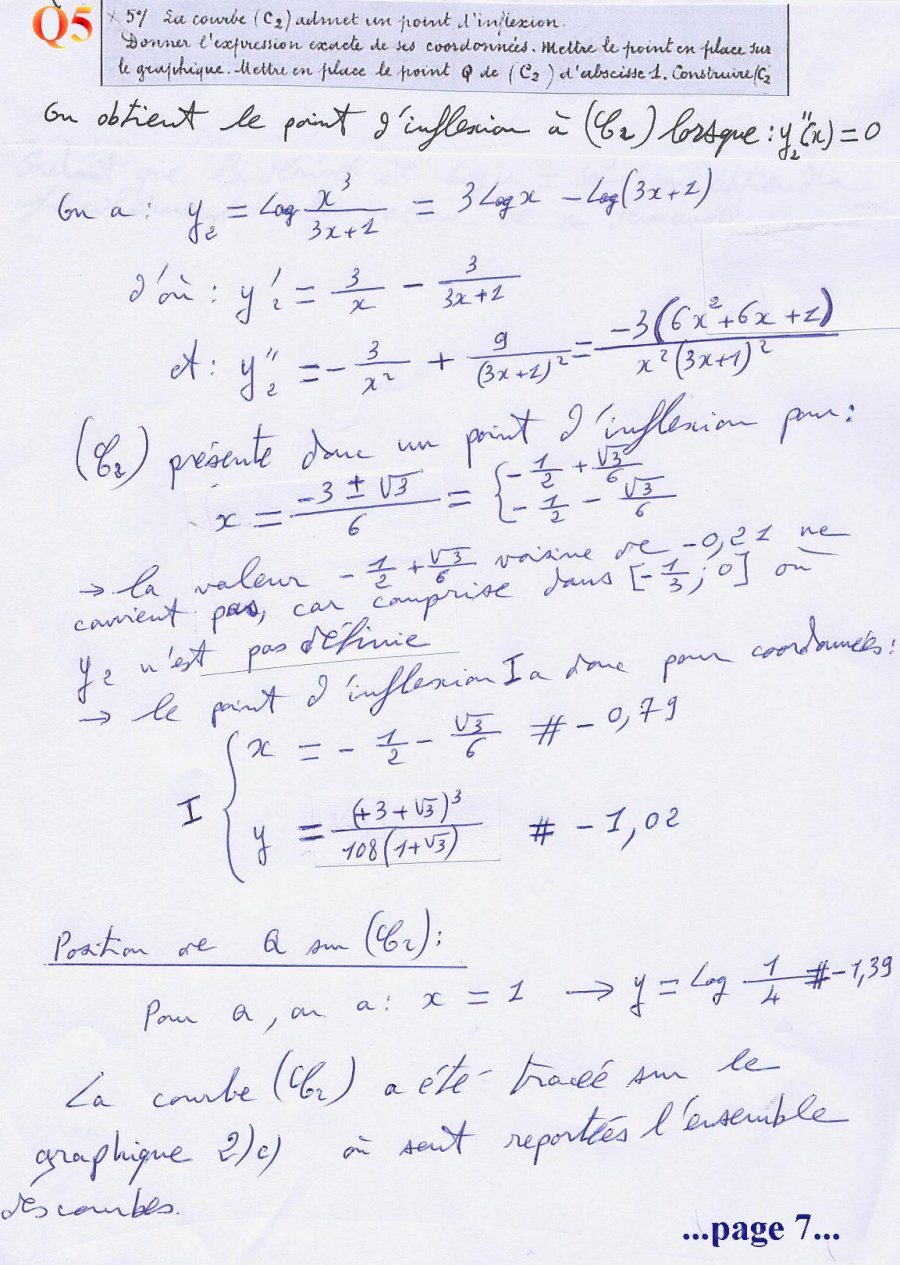 Q5
5°/ La courbe (C₂) admet un point d'inflexion.
Donner l'expression exacte de ses coordonnées. Mettre le point en place sur
le graphique. Mettre en place le point Q de (C₂) d'abscisse 1. Construire (C₂
On obtient le point d'inflexion à (C₂) lorsque : y₂''(x) = 0
On a : y₂ = Log x³/(3x+1) = 3 Log x - Log(3x+1)
d'où : y'₂ = 3/x - 3/(3x+1)
et : y''₂ = -3/x² + 9/(3x+1)² = -3(6x²+6x+1)/x²(3x+1)²
(C₂) présente donc un point d'inflexion pour :
x = (-3 ± √3)/6 = { -1/2 + √3/6
-1/2 - √3/6
→ la valeur -1/2 + √3/6 voisine de -0,21 ne
convient pas, car comprise dans [-1/3 ; 0] où
y₂ n'est pas définie
→ le point d'inflexion I a donc pour coordonnées :
I { x = -1/2 - √3/6 # -0,79
y = (+3+√3)³/108(1+√3) # -1,02
Position de Q sur (C₂) :
Pour Q, on a : x = 1 → y = Log 1/4 # -1,39
La courbe (C₂) a été tracé sur le
graphique 2)c) où sont reportées l'ensemble
des courbes.
...page 7...